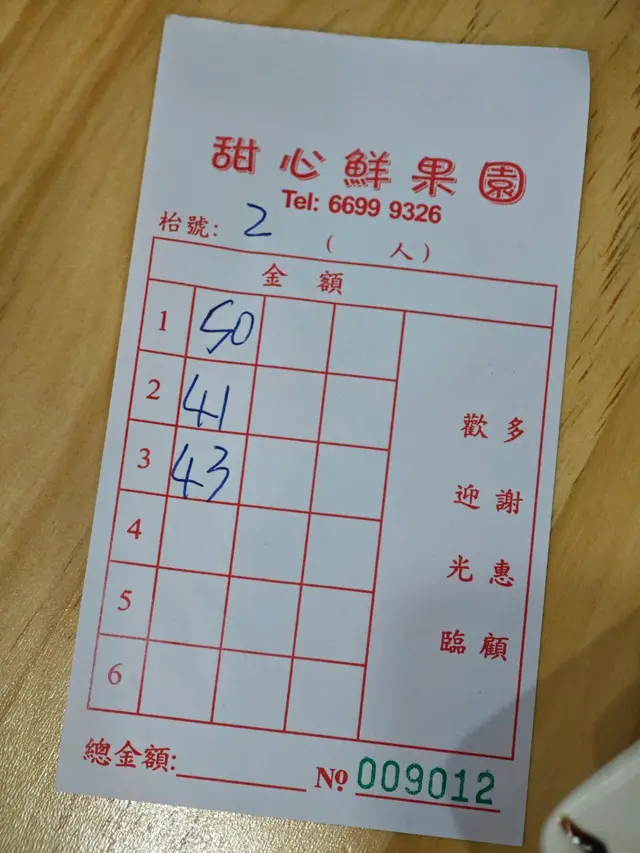 甜心鮮果園
Tel: 6699 9326
枱號: 2 ( 人)
金額
1 50
2 41
3 43
4
5
6
多謝惠顧
歡迎光臨
總金額: № 009012